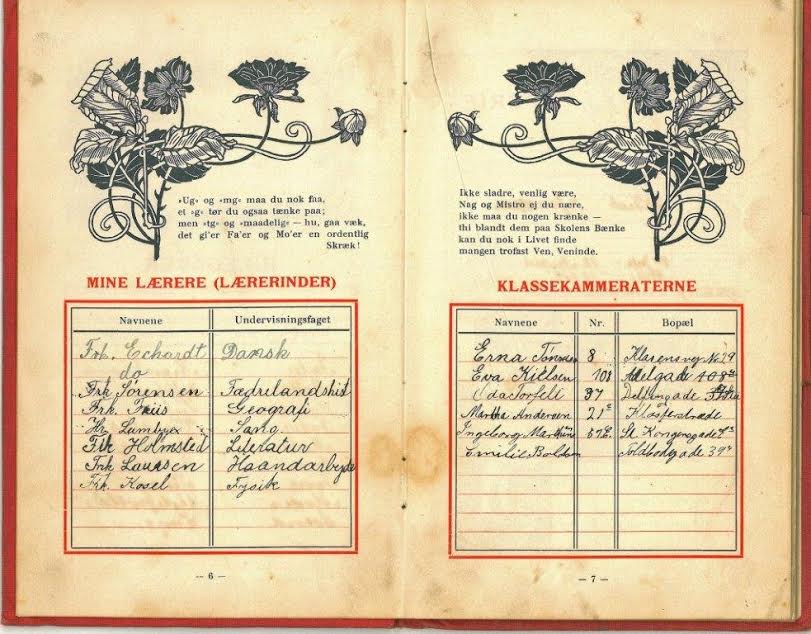 »Ug« og »mg« maa du nok faa,
et »g« tør du ogsaa tænke paa;
men »tg« og »maadelig« — hu, gaa væk,
det gi'er Fa'er og Mo'er en ordentlig
Skræk!
MINE LÆRERE (LÆRERINDER)
Navnene Undervisningsfaget
Frk. Echardt Dansk
do
Frk Sørensen Fædrelandshist
Frk. Friis Geografi
Hr Lumbye Sang
Frk Holmsted Literatur
Frk Laursen Haandarbejde
Frk. Kosel Fysik
— 6 —
Ikke sladre, venlig være,
Nag og Mistro ej du nære,
ikke maa du nogen krænke —
thi blandt dem paa Skolens Bænke
kan du nok i Livet finde
mangen trofast Ven, Veninde.
KLASSEKAMMERATERNE
Navnene Nr. Bopæl
Erna 8 No 29
Eva Kielsen Adelgade
Oda 37
Martha Andersen 21 Klosterstræde
Ingeborg St Kongensgade
Emilie Toldbodgade 39
— 7 —